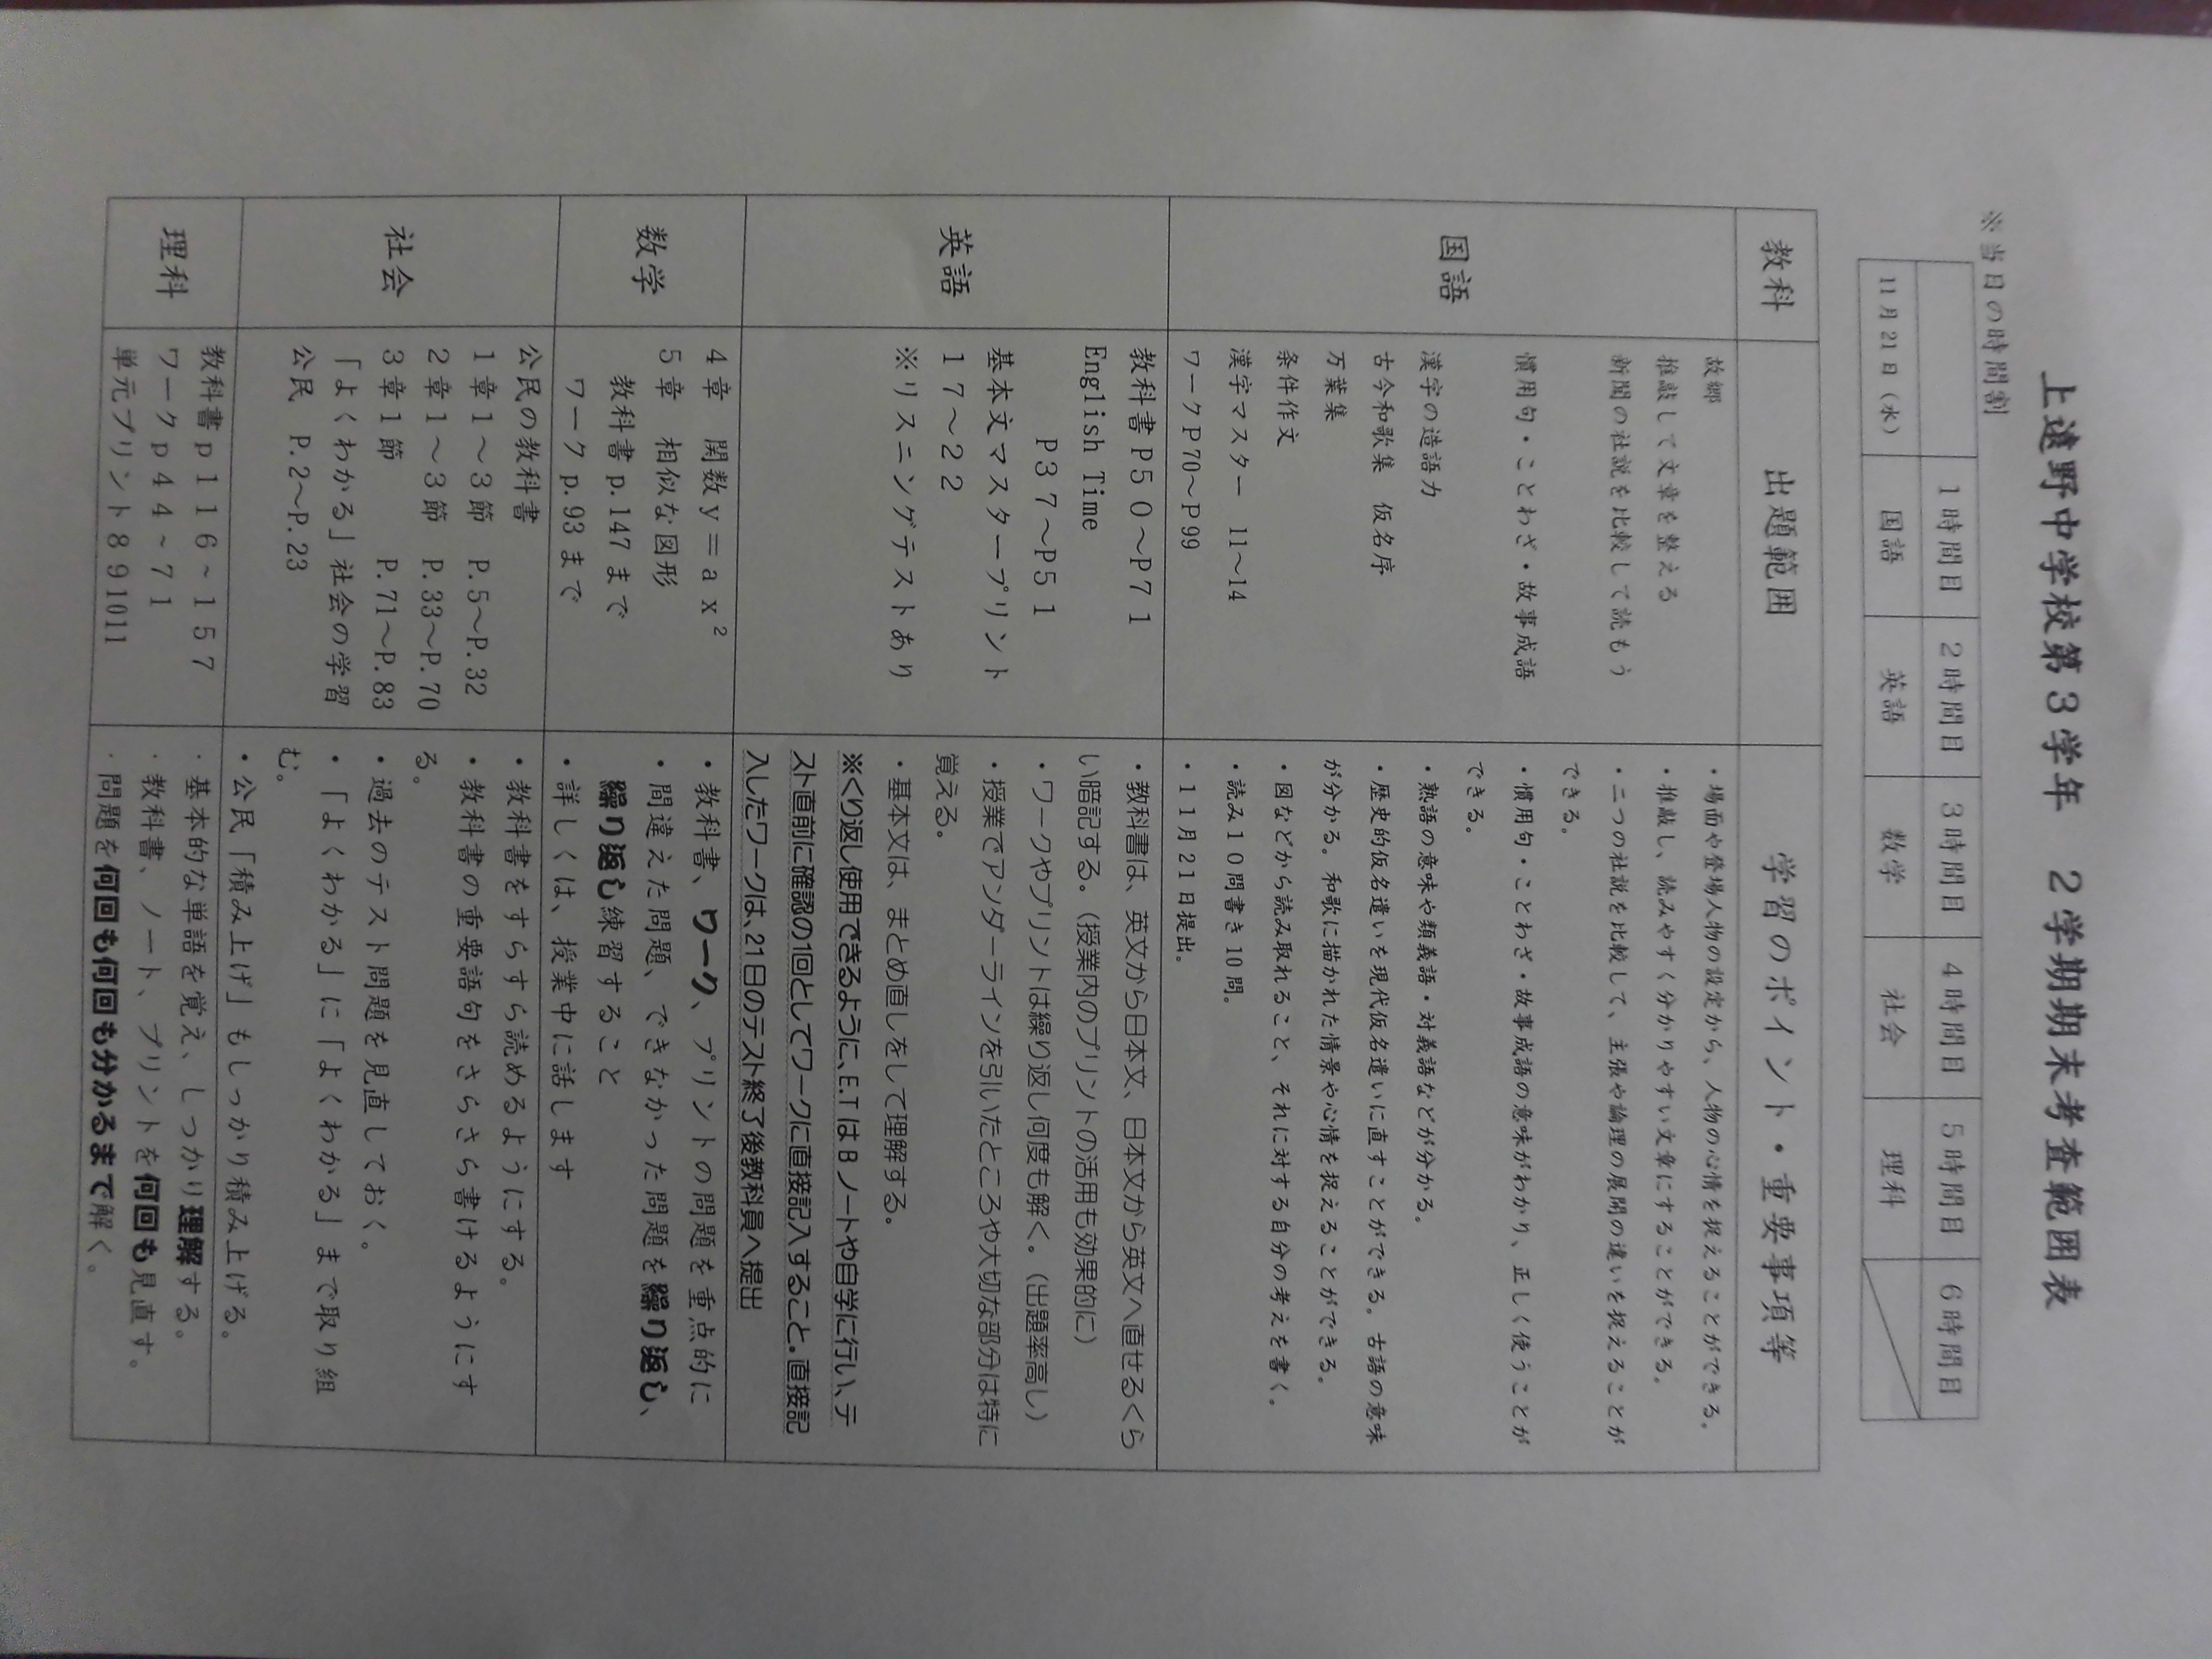 上遠野中学校第３学年　２学期期末考査範囲表
※当日の時間割
１時間目　２時間目　３時間目　４時間目　５時間目　６時間目
11月21日（水）　国語　英語　数学　社会　理科
教科　出題範囲　学習のポイント・重要事項等
国語
故郷
推敲して文章を整える
新聞の社説を比較して読もう
慣用句・ことわざ・故事成語
漢字の造語力
古今和歌集　仮名序
万葉集
条件作文
漢字マスター　11～14
ワークP70～P99
・場面や登場人物の設定から、人物の心情を捉えることができる。
・推敲し、読みやすく分かりやすい文章にすることができる。
・二つの社説を比較して、主張や論理の展開の違いを捉えることが
できる。
・慣用句・ことわざ・故事成語の意味がわかり、正しく使うことが
できる。
・熟語の意味や類義語・対義語などが分かる。
・歴史的仮名遣いを現代仮名遣いに直すことができる。古語の意味
が分かる。和歌に描かれた情景や心情を捉えることができる。
・図などから読み取れること、それに対する自分の考えを書く。
・読み１０問書き10問。
・１１月２１日提出。
英語
教科書Ｐ５０～Ｐ７１
English Time
Ｐ３７～Ｐ５１
基本文マスタープリント
１７～２２
※リスニングテストあり
・教科書は、英文から日本文、日本文から英文へ直せるくら
い暗記する。（授業内のプリントの活用も効果的に）
・ワークやプリントは繰り返し何度も解く。（出題率高し）
・授業でアンダーラインを引いたところや大切な部分は特に
覚える。
・基本文は、まとめ直しをして理解する。
※くり返し使用できるように、E.TはＢノートや自学に行い、テ
スト直前に確認の1回としてワークに直接記入すること。直接記
入したワークは、21日のテスト終了後教科員へ提出
数学
４章　関数ｙ＝ａｘ²
５章　相似な図形
教科書p.147まで
ワークp.93まで
・教科書、ワーク、プリントの問題を重点的に
・間違えた問題、できなかった問題を繰り返し、
繰り返し練習すること
・詳しくは、授業中に話します
社会
公民の教科書
１章１～３節　P.5～P.32
２章１～３節　P.33～P.70
３章１節　P.71～P.83
「よくわかる」社会の学習
公民　P.2～P.23
・教科書をすらすら読めるようにする。
・教科書の重要語句をさらさら書けるようにす
る。
・過去のテスト問題を見直しておく。
・「よくわかる」に「よくわかる」まで取り組
む。
・公民「積み上げ」もしっかり積み上げる。
理科
教科書ｐ１１６～１５７
ワークｐ４４～７１
単元プリント８９1011
・基本的な単語を覚え、しっかり理解する。
・教科書、ノート、プリントを何回も見直す。
・問題を何回も何回も分かるまで解く。